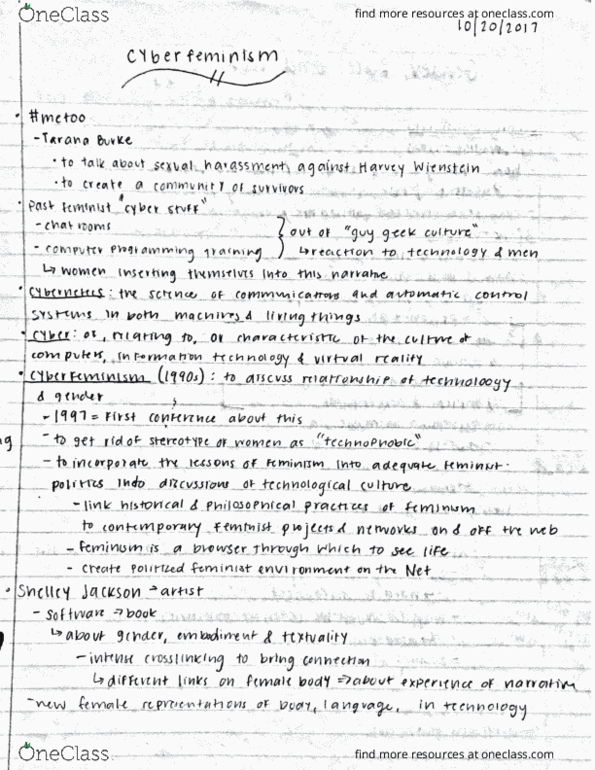 OneClass
find more resources at oneclass.com
10/20/2017
Cyberfeminism
• #metoo
- Tarana Burke
• to talk about sexual harassment against Harvey Wienstein
• to create a community of survivors
• Past feminist "cyber stuff"
- chat rooms
- computer programming training } out of "guy geek culture"
↳ reaction to technology & men
↳ women inserting themselves into this narrative
• Cybernetics: the science of communications and automatic control
systems in both machines & living things
• Cyber: of, relating to, or characteristic of the culture of
computers, information technology & virtual reality
• Cyberfeminism (1990s): to discuss relationship of technology
& gender
- 1997 = First conference about this
- to get rid of stereotype of women as "technophobic"
- to incorporate the lessons of feminism into adequate feminist
politics into discussions of technological culture
- link historical & philosophical practices of feminism
to contemporary feminist projects & networks on & off the web
- feminism is a browser through which to see life
- create politized feminist environment on the Net
• Shelley Jackson → artist
- software → book
↳ about gender, embodiment & textuality
- intense crosslinking to bring connection
↳ different links on female body ⇒ about experience of narrative
- new female representations of body, language, in technology
OneClass
find more resources at oneclass.com